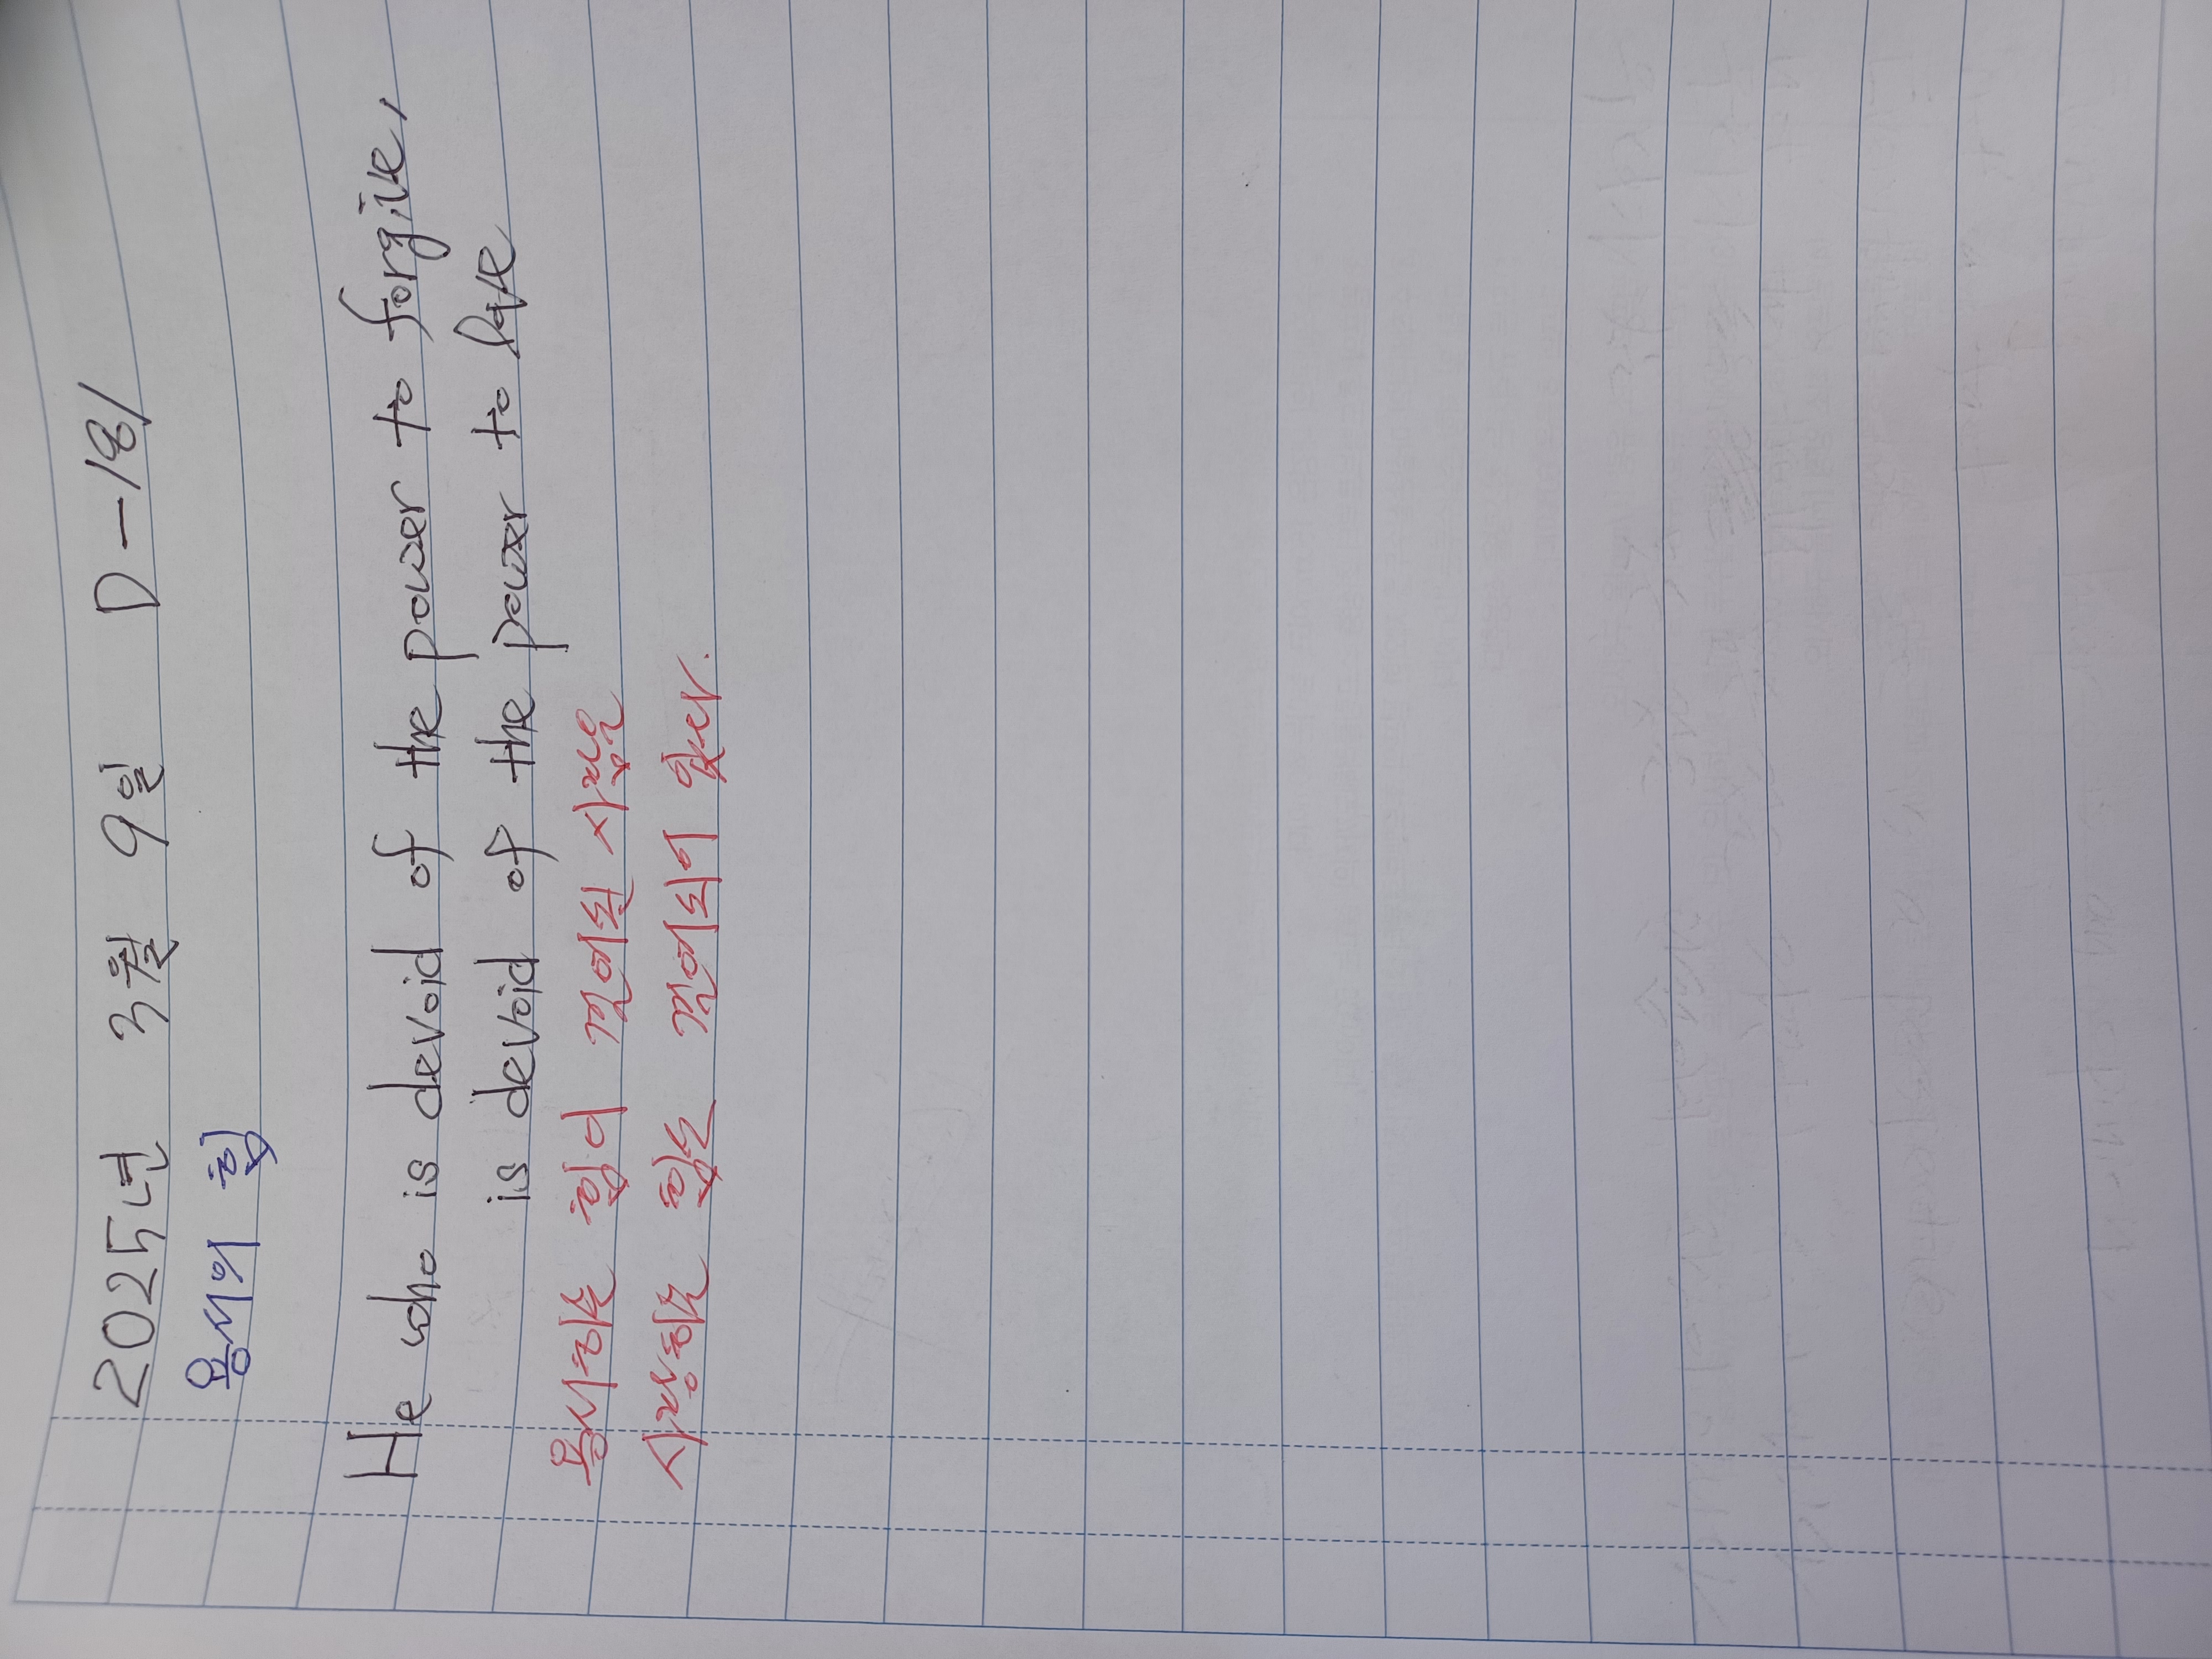 2025년 3월 9일 D-181
용서의 힘
He who is devoid of the power to forgive,
is devoid of the power to love
용서하는 힘이 결여된 사람은
사랑하는 힘도 결여되어 있다.